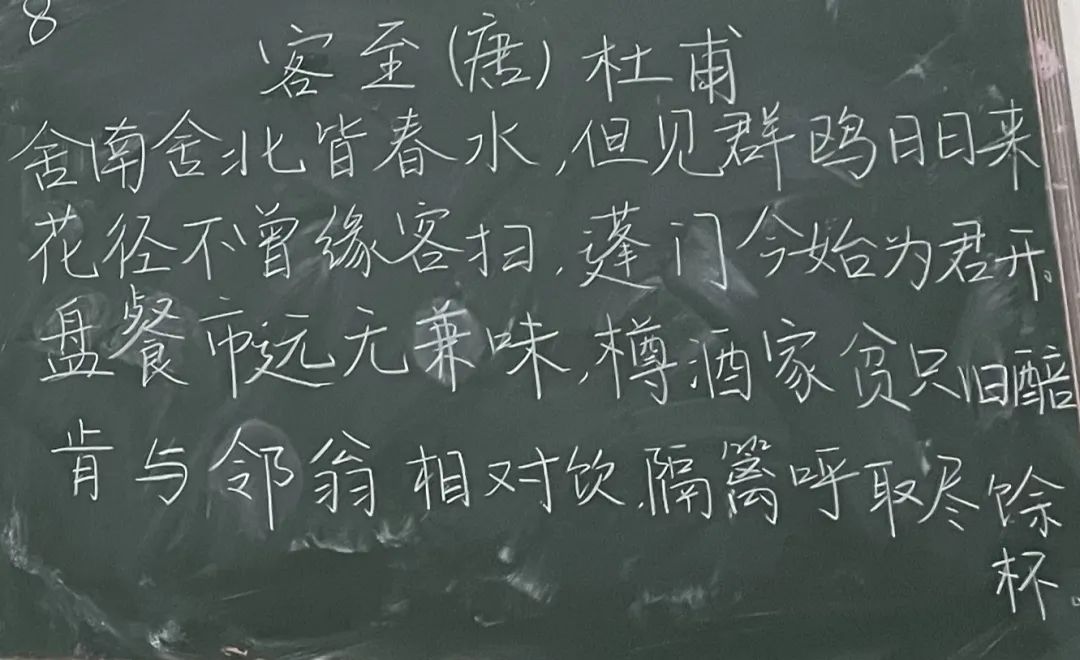 8
客至(唐)杜甫
舍南舍北皆春水,但见群鸥日日来
花径不曾缘客扫,蓬门今始为君开。
盘餐市远无兼味,樽酒家贫只旧醅
肯与邻翁相对饮,隔篱呼取尽馀
杯。